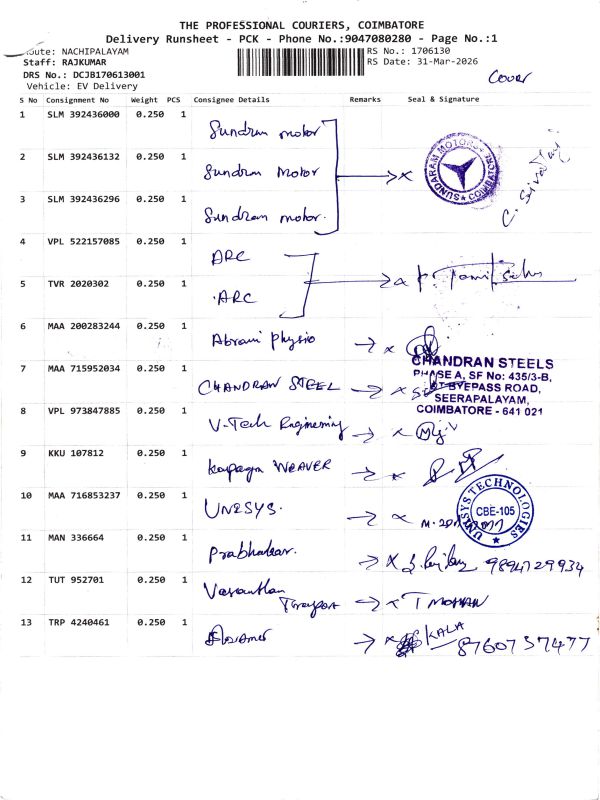 THE PROFESSIONAL COURIERS, COIMBATORE
Delivery Runsheet - PCK - Phone No.:9047080280 - Page No.:1
oute: NACHIPALAYAM
RS No.: 1706130
Staff: RAJKUMAR
RS Date: 31-Mar-2026
DRS No.: DCJB170613001
Vehicle: EV Delivery
Cover
S No Consignment No Weight PCS Consignee Details Remarks Seal & Signature
1 SLM 392436000 0.250 1 Sundram motor
2 SLM 392436132 0.250 1 Sundram Motor x
SUNDARAM MOTORS COIMBATORE
3 SLM 392436296 0.250 1 Sundram motor.
4 VPL 522157085 0.250 1 ARC
5 TVR 2020302 0.250 1 .ARC
6 MAA 200283244 0.250 1 Abrami physio x
7 MAA 715952034 0.250 1 CHANDRAN STEEL x
CHANDRAN STEELS
PHASE A, SF No: 435/3-B,
BYEPASS ROAD,
SEERAPALAYAM,
COIMBATORE - 641 021
8 VPL 973847885 0.250 1 V-Tech Engineering x
9 KKU 107812 0.250 1 WEAVER x
10 MAA 716853237 0.250 1 UNESYS. x
UNISYS TECHNOLOGIES
CBE-105
11 MAN 336664 0.250 1 Prabhakar. x 9894729934
12 TUT 952701 0.250 1 Vasanthan x T MOHAN
13 TRP 4240461 0.250 1 x KALA
8760737477